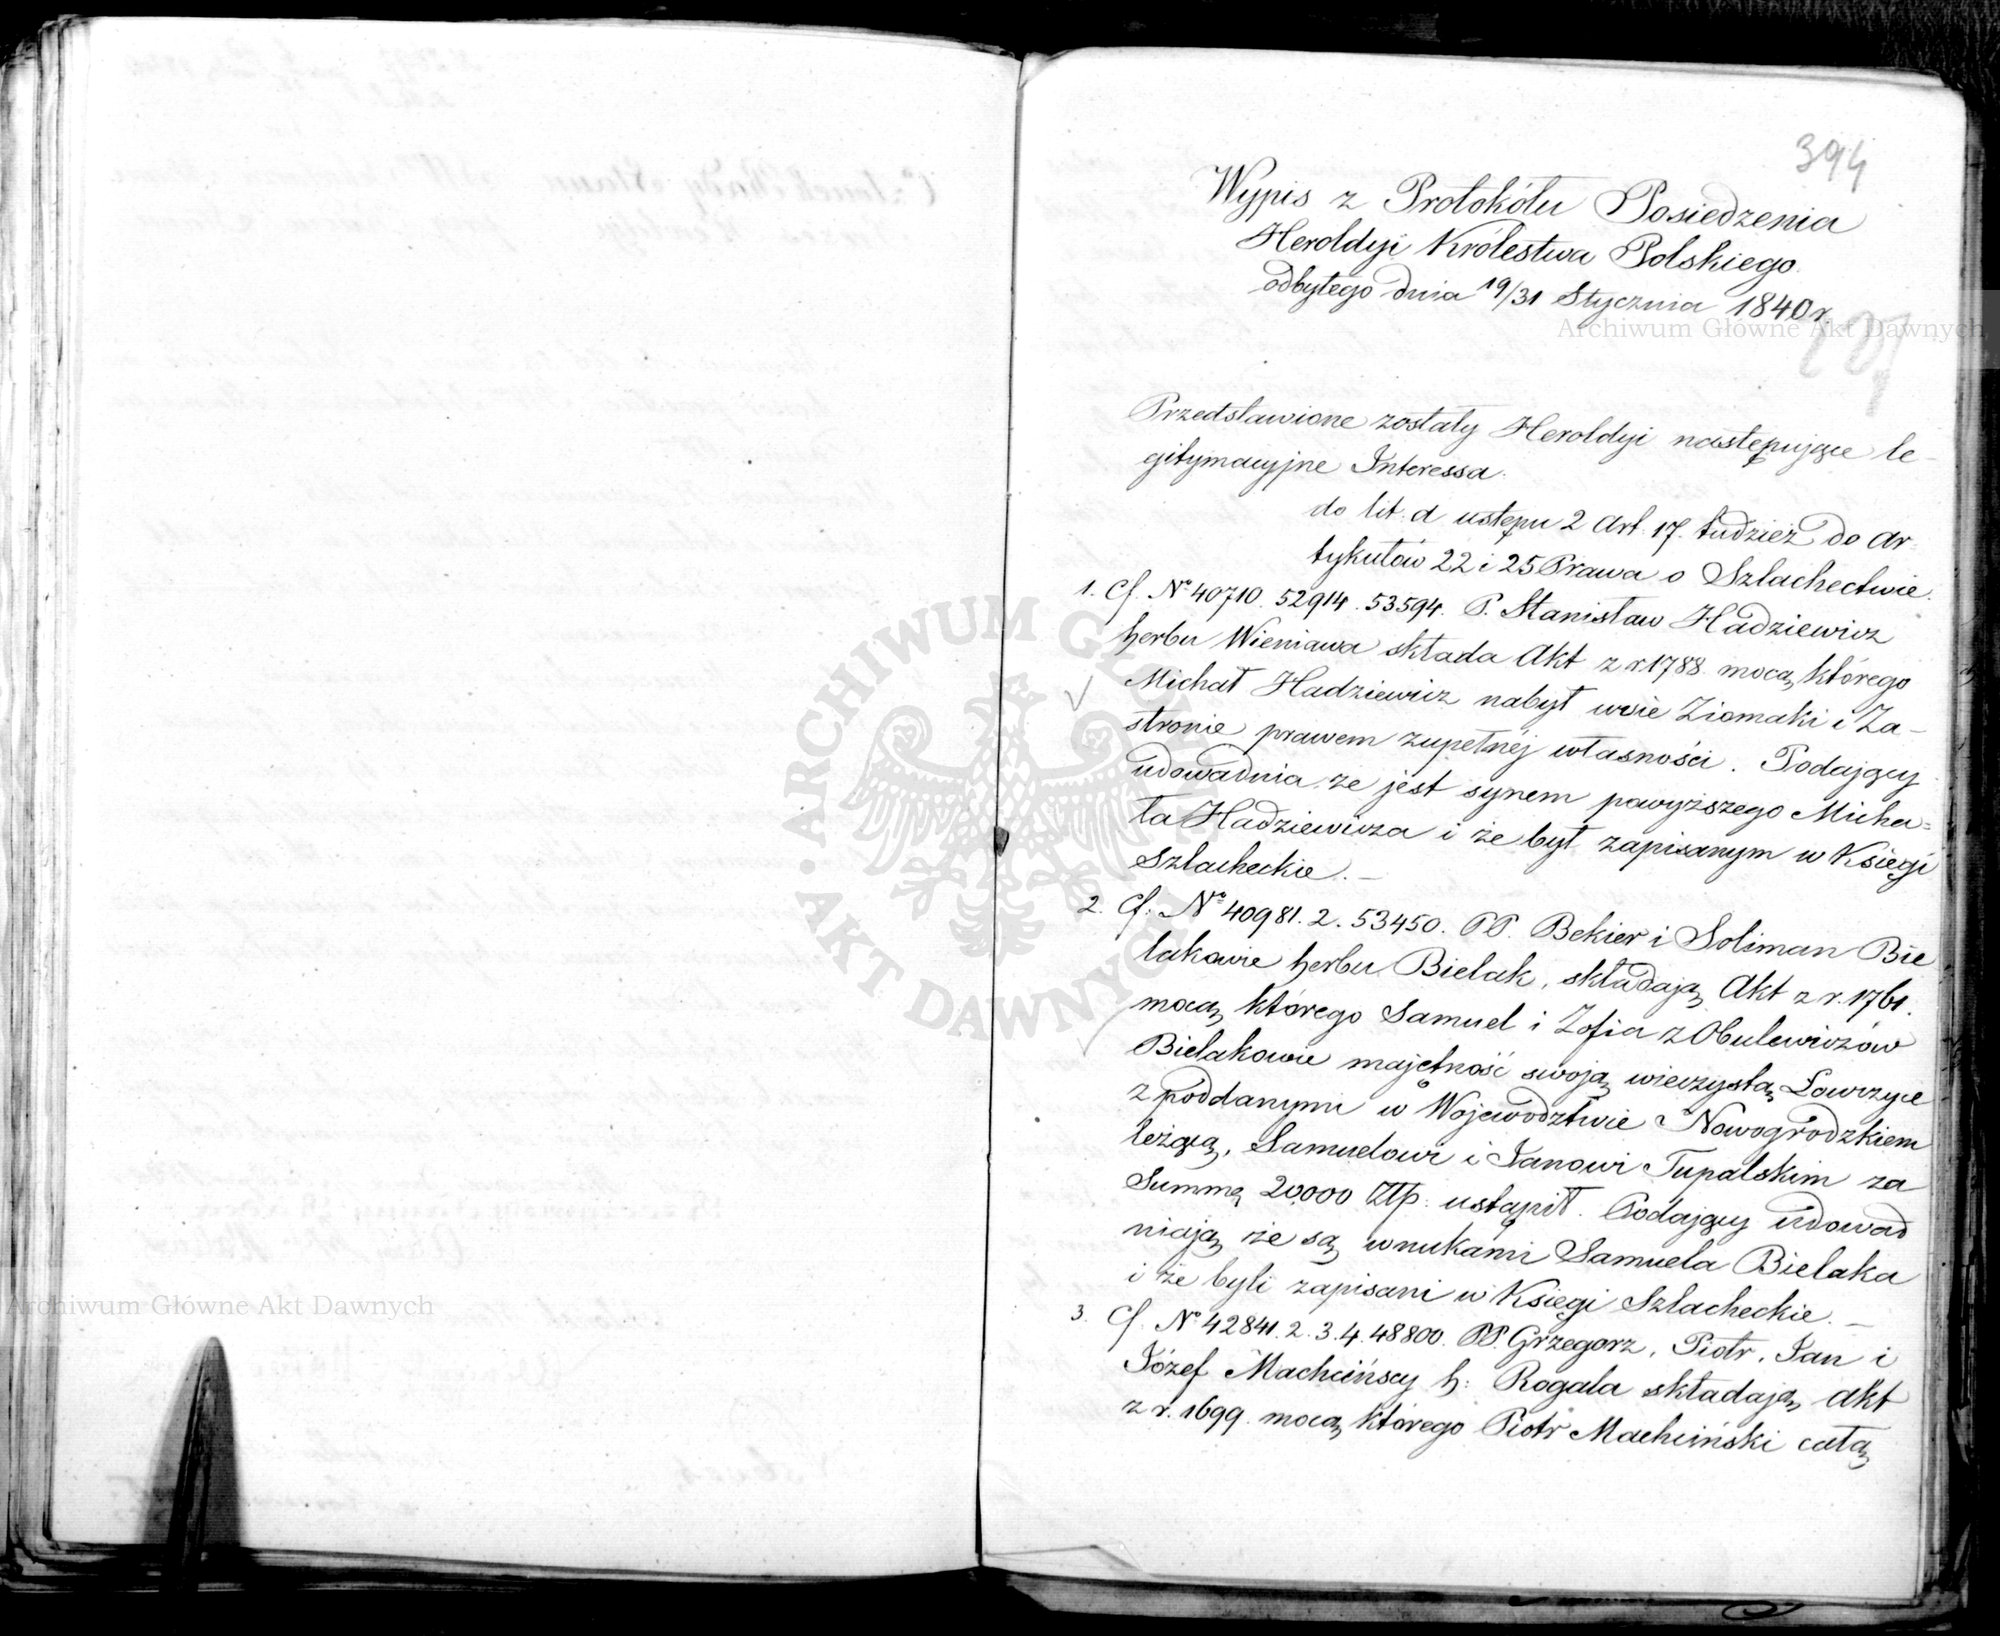 394
Wypis z Protokółu Posiedzenia
Heroldyi Królestwa Polskiego
odbytego dnia 19/31 Stycznia 1840 r.
Archiwum Główne Akt Dawnych
Przedstawione zostały Heroldyi następujące le-
gitymacyjne Interessa.
do lit. d ustępu 2 Art. 17. tudzież do Ar-
tykułów 22 i 25 Prawa o Szlachectwie.
1. Cf. No 40710. 52914. 53594. P. Stanisław Hadziewicz
herbu Wieniawa składa Akt z r 1788 mocą którego
Michał Hadziewicz nabył wsie Ziomaki i Za-
stronie prawem zupełnéj własności. Podający
udowadnia, że jest synem powyższego Micha=
ła Hadziewicza i że był zapisanym w Księgi
Szlacheckie. –
2. Cf. No 40981. 2. 53450. PP. Bekier i Soliman Bie
lakowie herbu Bielak, składają Akt z r. 1761.
mocą którego Samuel i Zofia z Obulewiczów
Bielakowie majętność swoją wieczystą Łowczyce
z poddanymi w Województwie Nowogrodzkiem
leżącą, Samuelowi i Janowi Tupalskim za
Summę 20000 Złp. ustąpił. Podający udowad
niają że są wnukami Samuela Bielaka
i że byli zapisani w Księgi Szlacheckie. –
3. Cf. No 42841. 2. 3. 4. 48800. PP. Grzegorz, Piotr, Jan i
Józef Machcińscy h: Rogala składają Akt
z r. 1699. mocą którego Piotr Machciński całą
Archiwum Główne Akt Dawnych
ARCHIWUM GŁÓWNE AKT DAWNYCH